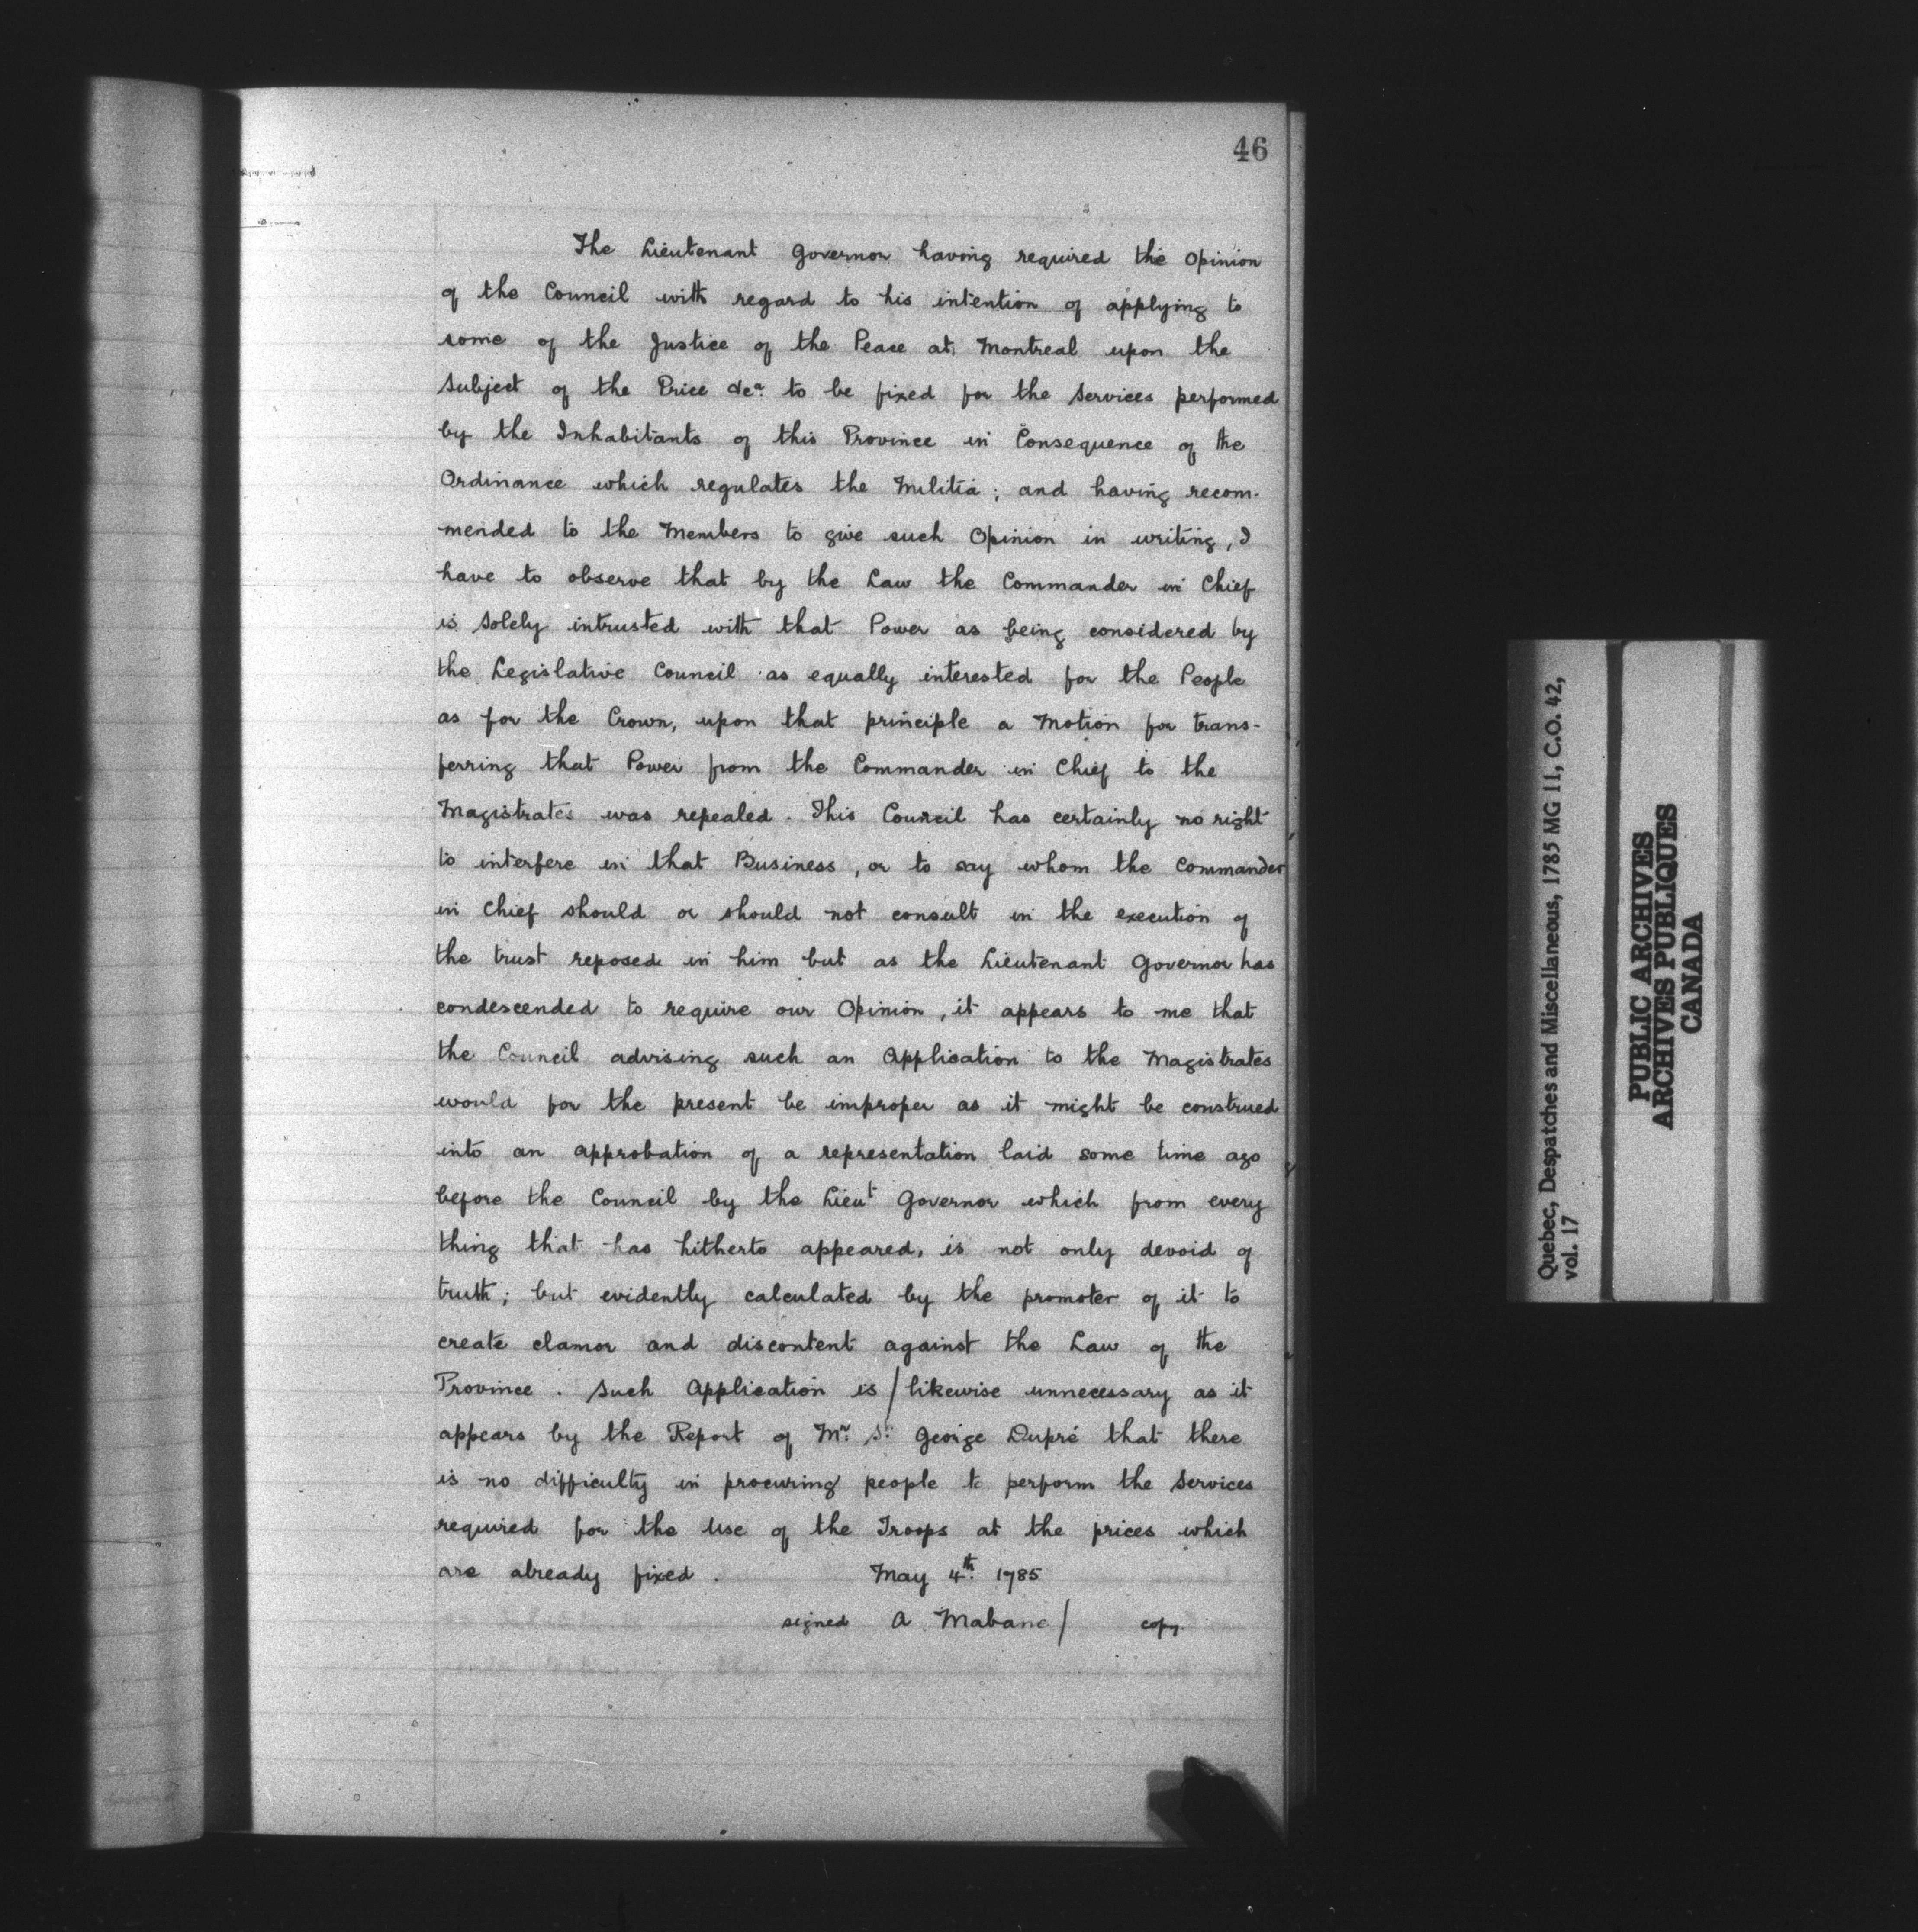 46
The Lieutenant Governor having required the Opinion
of the Council with regard to his intention of applying to
some of the Justice of the Peace at Montreal upon the
Subject of the Price &ca. to be fixed for the Services performed
by the Inhabitants of this Province in Consequence of the
Ordinance which regulates the Militia; and having recom-
mended to the Members to give such Opinion in writing, I
have to observe that by the Law the Commander in Chief
is Solely intrusted with that Power as being considered by
the Legislative Council as equally interested for the People
as for the Crown, upon that principle a Motion for trans-
ferring that Power from the Commander in Chief to the
Magistrates was repealed. This Council has certainly no right
to interfere in that Business, or to say whom the Commander
in Chief should or should not consult in the execution of
the trust reposed in him but as the Lieutenant Governor has
condescended to require our Opinion, it appears to me that
the Council advising such an Application to the Magistrates
would for the present be improper as it might be construed
into an approbation of a representation laid some time ago
before the Council by the Lieut Governor which from every
thing that has hitherto appeared, is not only devoid of
truth; but evidently calculated by the promoter of it to
create clamor and discontent against the Law of the
Province. Such Application is / likewise unnecessary as it
appears by the Report of Mr. St. George Dupré that there
is no difficulty in procuring people to perform the Services
required for the Use of the Troops at the prices which
are already fixed. May 4th. 1785
signed A Mabane / copy.
Quebec, Despatches and Miscellaneous, 1785 MG 11, C.O. 42,
vol. 17
PUBLIC ARCHIVES
ARCHIVES PUBLIQUES
CANADA